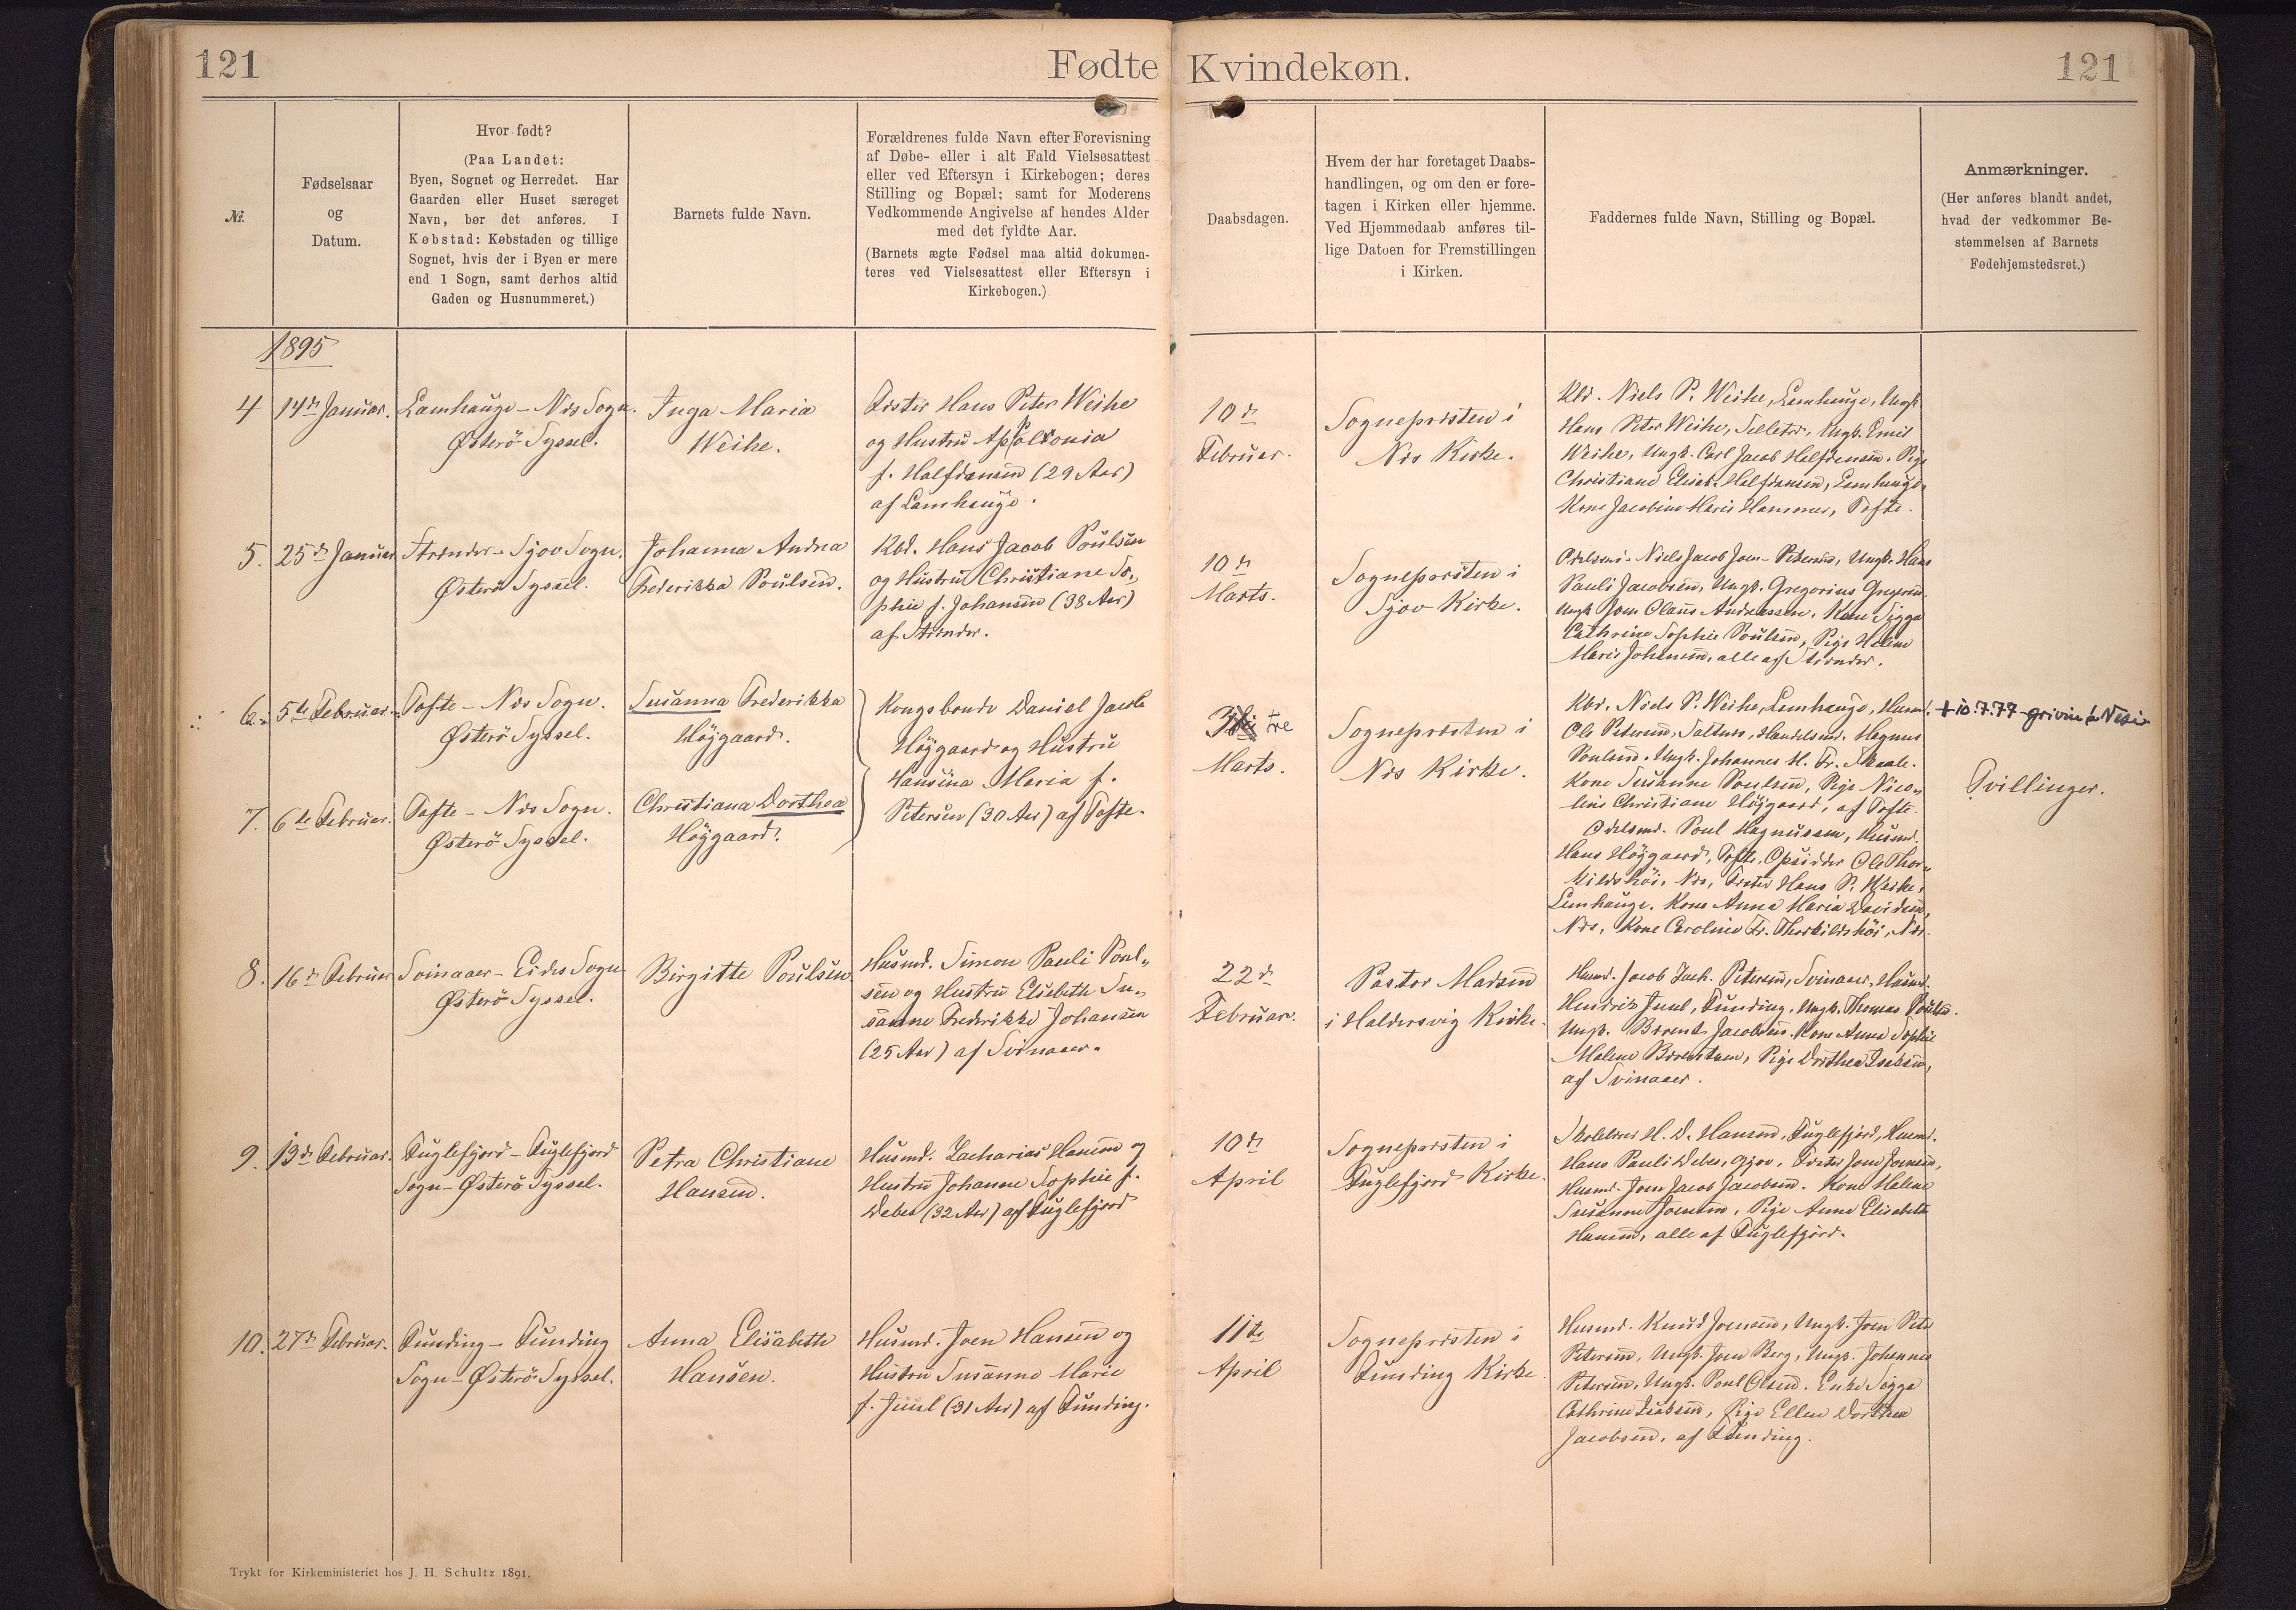 121
Fødte
Kvindekøn.
121
№.
Fødselsaar
og
Datum.
Hvor født?
(Paa Landet:
Byen, Sognet og Herredet. Har
Gaarden eller Huset særeget
Navn, bør det anføres. I
Købstad: Købstaden og tillige
Sognet, hvis der i Byen er mere
end 1 Sogn, samt derhos altid
Gaden og Husnummeret.)
Barnets fulde Navn.
Forældrenes fulde Navn efter Forevisning
af Døbe- eller i alt Fald Vielsesattest
eller ved Eftersyn i Kirkebogen; deres
Stilling og Bopæl; samt for Moderens
Vedkommende Angivelse af hendes Alder
med det fyldte Aar.
(Barnets ægte Fødsel maa altid dokumen-
teres ved Vielsesattest eller Eftersyn i
Kirkebogen.)
Daabsdagen.
Hvem der har foretaget Daabs-
handlingen, og om den er fore-
tagen i Kirken eller hjemme.
Ved Hjemmedaab anføres til-
lige Datoen for Fremstillingen
i Kirken.
Faddernes fulde Navn, Stilling og Bopæl.
Anmærkninger.
(Her anføres blandt andet,
hvad der vedkommer Be-
stemmelsen af Barnets
Fødehjemstedsret.)
1895
4
14de Januar.
Lamhauge - Nes Sogn.
Østerö Syssel.
Inga Maria
Weihe.
Fæster Hans Peter Weihe
og Hustru
f. Halfdansen (29 Aar)
af Lamhauge.
10de
Februar.
Sognepresten i
Nes Kirke.
Kbd. Niels P. Weihe, Lamhauge, Ungk.
Hans Peter Weihe, Selletræ, Ungk. Emil
Weihe, Ungk. Carl Jacob Halfdansen. Pige
Christiane Elisab. Halfdansen, Lamhauge.
Kone Jacobine Marie Hammer, Tofte.
5.
25de Januar
Strænder - Sjov Sogn.
Østerö Syssel.
Johanna Andrea
Frederikka Poulsen.
Kbd. Hans Jacob Poulsen
og Hustru Christiane So-
phie f. Johansen (38 Aar)
af Strænder.
10de
Marts.
Sognepresten i
Sjov Kirke.
Odelsmd. Niels Jacob Joen-Petersen, Ungk. Hans
Pauli Jacobsen, Ungk. Gregorius
Ungk. Joen Olaus Andreassen, Kone Sigga
Cathrine Sophie Poulsen, Pige Helene
Marie Johansen, alle af Strænder.
6.
5te Februar.
Tofte - Nes Sogn.
Østerö Syssel.
Susanna Frederikka
Höjgaard.
Kongsbonde Daniel Jacob
Höjgaard og Hustru
Hansina Maria f.
Petersen (30 Aar) af Tofte.
3
Marts.
Sognepresten i
Nes Kirke.
Kbd. Niels P. Weihe, Lamhauge, Husmd.
Ole Petersen, Saltnes, Handelsmd. Magnus
Poulsen, Ungk. Johannes M. Fr. Skaale.
Kone Susanne Poulsen, Pige Nico-
line Christiane Höjgaard, af Tofte.
+ 10.7.77 grivin á Nesi
Tvillinger.
7.
6te Februar.
Tofte - Nes Sogn.
Østerö Syssel.
Christiana Dorthea
Höjgaard.
Odelsmd. Poul Magnussen, Husmd.
Hans Höjgaard, Tofte, Opsidder Ole Thor-
kildshöi, Nes, Fæster Hans P. Weihe,
Lamhauge. Kone Anna Maria Davidsen,
Nes, Kone Caroline Fr. Thorkildshöi, Nes.
8.
16de Februar
Svinaaer - Eides Sogn
Østerö Syssel.
Birgitte Poulsen.
Husmd. Simon Pauli Poul-
sen og Hustru Elisabeth Su-
sanne Frederikke Johansen
(25 Aar) af Svinaaer.
22de
Februar.
Pastor Madsen
i Haldersvig Kirke.
Husmd. Jacob Zach. Petersen, Svinaaer, Husmd.
Hendrik Juul, Funding, Ungk. Thomas Poulsen.
Ungk. Berent Jacobsen. Kone Anna Sophie
Malene Berentsen, Pige Dorthea Isaksen,
af Svinaaer.
9.
13de Februar.
Fuglefjord - Fuglefjord
Sogn - Østerö Syssel.
Petra Christiane
Hansen.
Husmd. Zacharias Hansen og
Hustru Johanne Sophie f.
Debes (32 Aar) af Fuglefjord
10de
April
Sognepresten i
Fuglefjord Kirke.
Skolelærer H. D. Hansen, Fuglefjord, Husmd.
Hans Pauli Debes, Gjov, Fæster Joen Joensen,
Husmd. Joen Jacob Jacobsen. Kone Malene
Susanne Joensen, Pige Anne Elisabeth
Hansen, alle af Fuglefjord.
10.
27de Februar.
Funding - Funding
Sogn - Østerö Syssel.
Anna Elisabeth
Hansen.
Husmd. Joen Hansen og
Hustru Susanne Marie
f. Juul (31 Aar) af Funding.
11te
April
Sognepresten i
Funding Kirke.
Husmd. Knud Joensen, Ungk. Joen Peter
Petersen, Ungk. Joen Berg, Ungk. Johannes
Petersen, Ungk. Poul Olsen. Enke Sigga
Cathrine Isaksen, Pige Ellen Dorthea
Jacobsen, af Funding.
Trykt for Kirkeministeriet hos J. H. Schultz 1891.